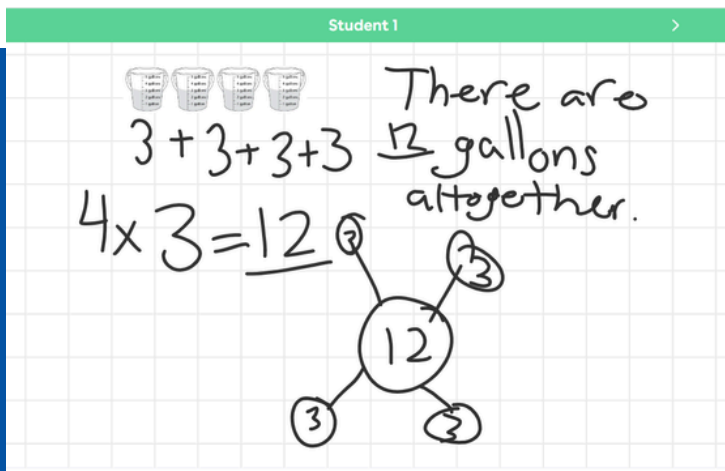 Student 1
There are
3 + 3 + 3 + 3 12 gallons
altogether.
4 x 3 = 12
3
3
12
3
3